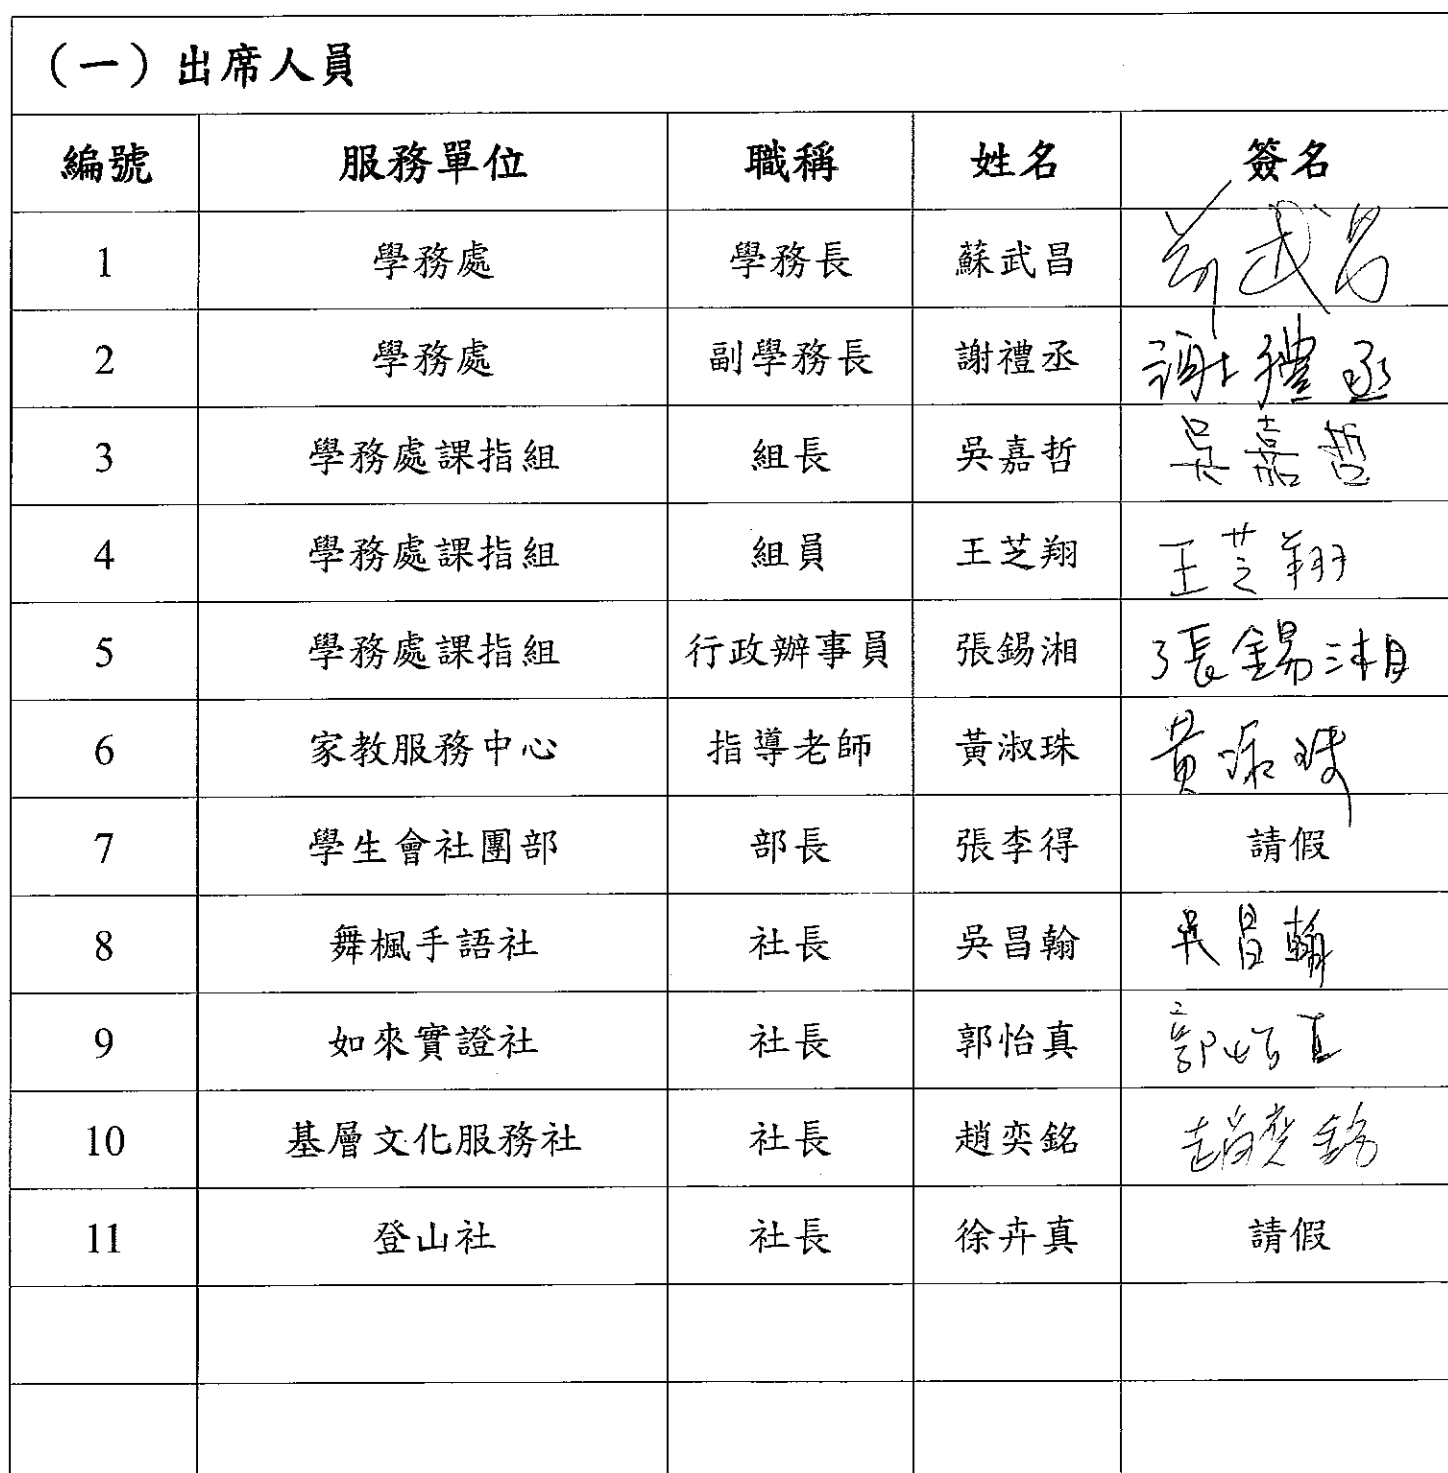 （一）出席人員
編號 服務單位 職稱 姓名 簽名
1 學務處 學務長 蘇武昌 蘇武昌
2 學務處 副學務長 謝禮丞 謝禮丞
3 學務處課指組 組長 吳嘉哲 吳嘉哲
4 學務處課指組 組員 王芝翔 王芝翔
5 學務處課指組 行政辦事員 張錫湘 張錫湘
6 家教服務中心 指導老師 黃淑珠 黃淑珠
7 學生會社團部 部長 張李得 請假
8 舞楓手語社 社長 吳昌翰 吳昌翰
9 如來實證社 社長 郭怡真 郭怡真
10 基層文化服務社 社長 趙奕銘 趙奕銘
11 登山社 社長 徐卉真 請假